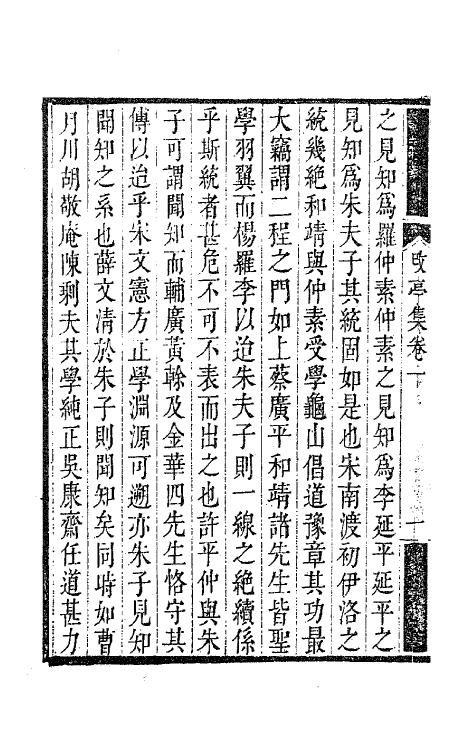 改亭集卷
之見知爲羅仲素仲素之見知爲李延平延平之
見知爲朱夫子其統固如是也宋南渡初伊洛之
統幾絶和靖與仲素受學龜山倡道豫章其功最
大竊謂二程之門如上蔡廣平和靖諸先生皆聖
學羽翼而楊羅李以迨朱夫子則一線之絶續係
乎斯統者甚危不可不表而出之也許平仲與朱
子可謂聞知而輔廣黃榦及金華四先生恪守其
傳以迨乎宋文憲方正學淵源可遡亦朱子見知
聞知之系也薛文清於朱子則聞知矣同時如曹
月川胡敬庵陳剩夫其學純正吳康齋任道甚力